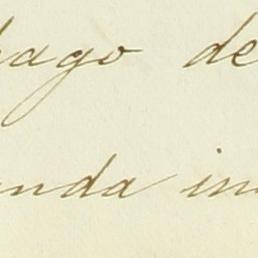 hago de
anda in